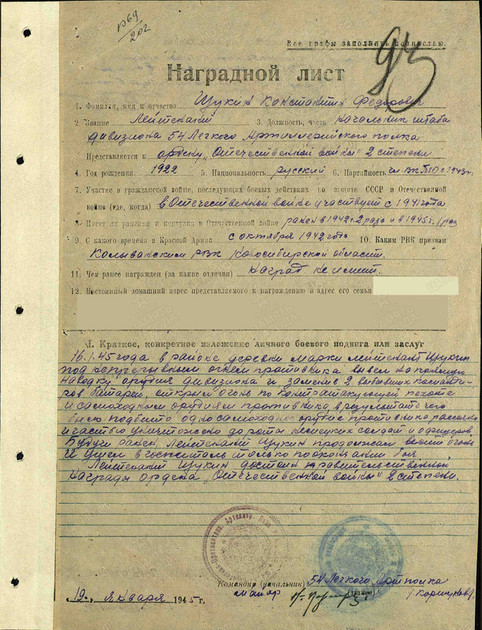 1369
202
93
Все графы заполнять полностью.
Наградной лист
1. Фамилия, имя и отчество Щукин Константин Федорович
2. Звание Лейтенант 3. Должность, часть Начальник штаба
дивизиона 54 Легкого Артиллерийского полка
Представляется к ордену „Отечественной войны" 2 степени
4. Год рождения 1922 5. Национальность русский 6. Партийность с 1943г.
7. Участие в гражданской войне, последующих боевых действиях по защите СССР и Отечественной
войне (где, когда) в Отечественной войне участвует с 1941 года
8. Имеет ли ранения и контузии в Отечественной войне ранен в 1942г. 2 раза и в 1945г. 1 раз
9. С какого времени в Красной Армии с октября 1942 года 10. Каким РВК призван
Колыванским РВК Новосибирской области.
11. Чем ранее награжден (за какие отличия) наград не имеет.
12. Постоянный домашний адрес представляемого к награждению и адрес его семьи
I. Краткое, конкретное изложение личного боевого подвига или заслуг
16.1.45 года в районе деревни Марки лейтенант Щукин
под непрерывным огнем противника вывел на прямую
наводку орудия дивизиона и заменив 2 выбывших командиров
батарей, открыл огонь по контратакующей пехоте
и самоходным орудиям противника, в результате чего
было подбито одно самоходное орудие противника, рассеяно
и частью уничтожено до роты немецких солдат и офицеров.
Будучи ранен, Лейтенант Щукин продолжал вести огонь
и ушел в госпиталь только по окончании боя.
Лейтенант Щукин достоин правительственной
награды ордена „Отечественной войны" 2 степени.
Командир (начальник) 54 Легкого артполка
майор
19. Января 1945 г.